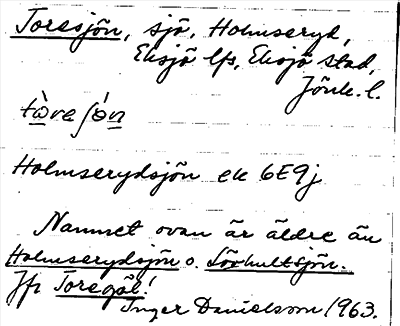 Toresjön, sjö, Holmseryd,
Eksjö lfs, Eksjö stad,
Jönk. l.
tò̱re ʃö́n
Holmserydsjön ek 6E9j
Namnet ovan är äldre än
Holmserydsjön o. Lövhultsjön.
Jfr Toregöl!
Inger Danielsson 1963.